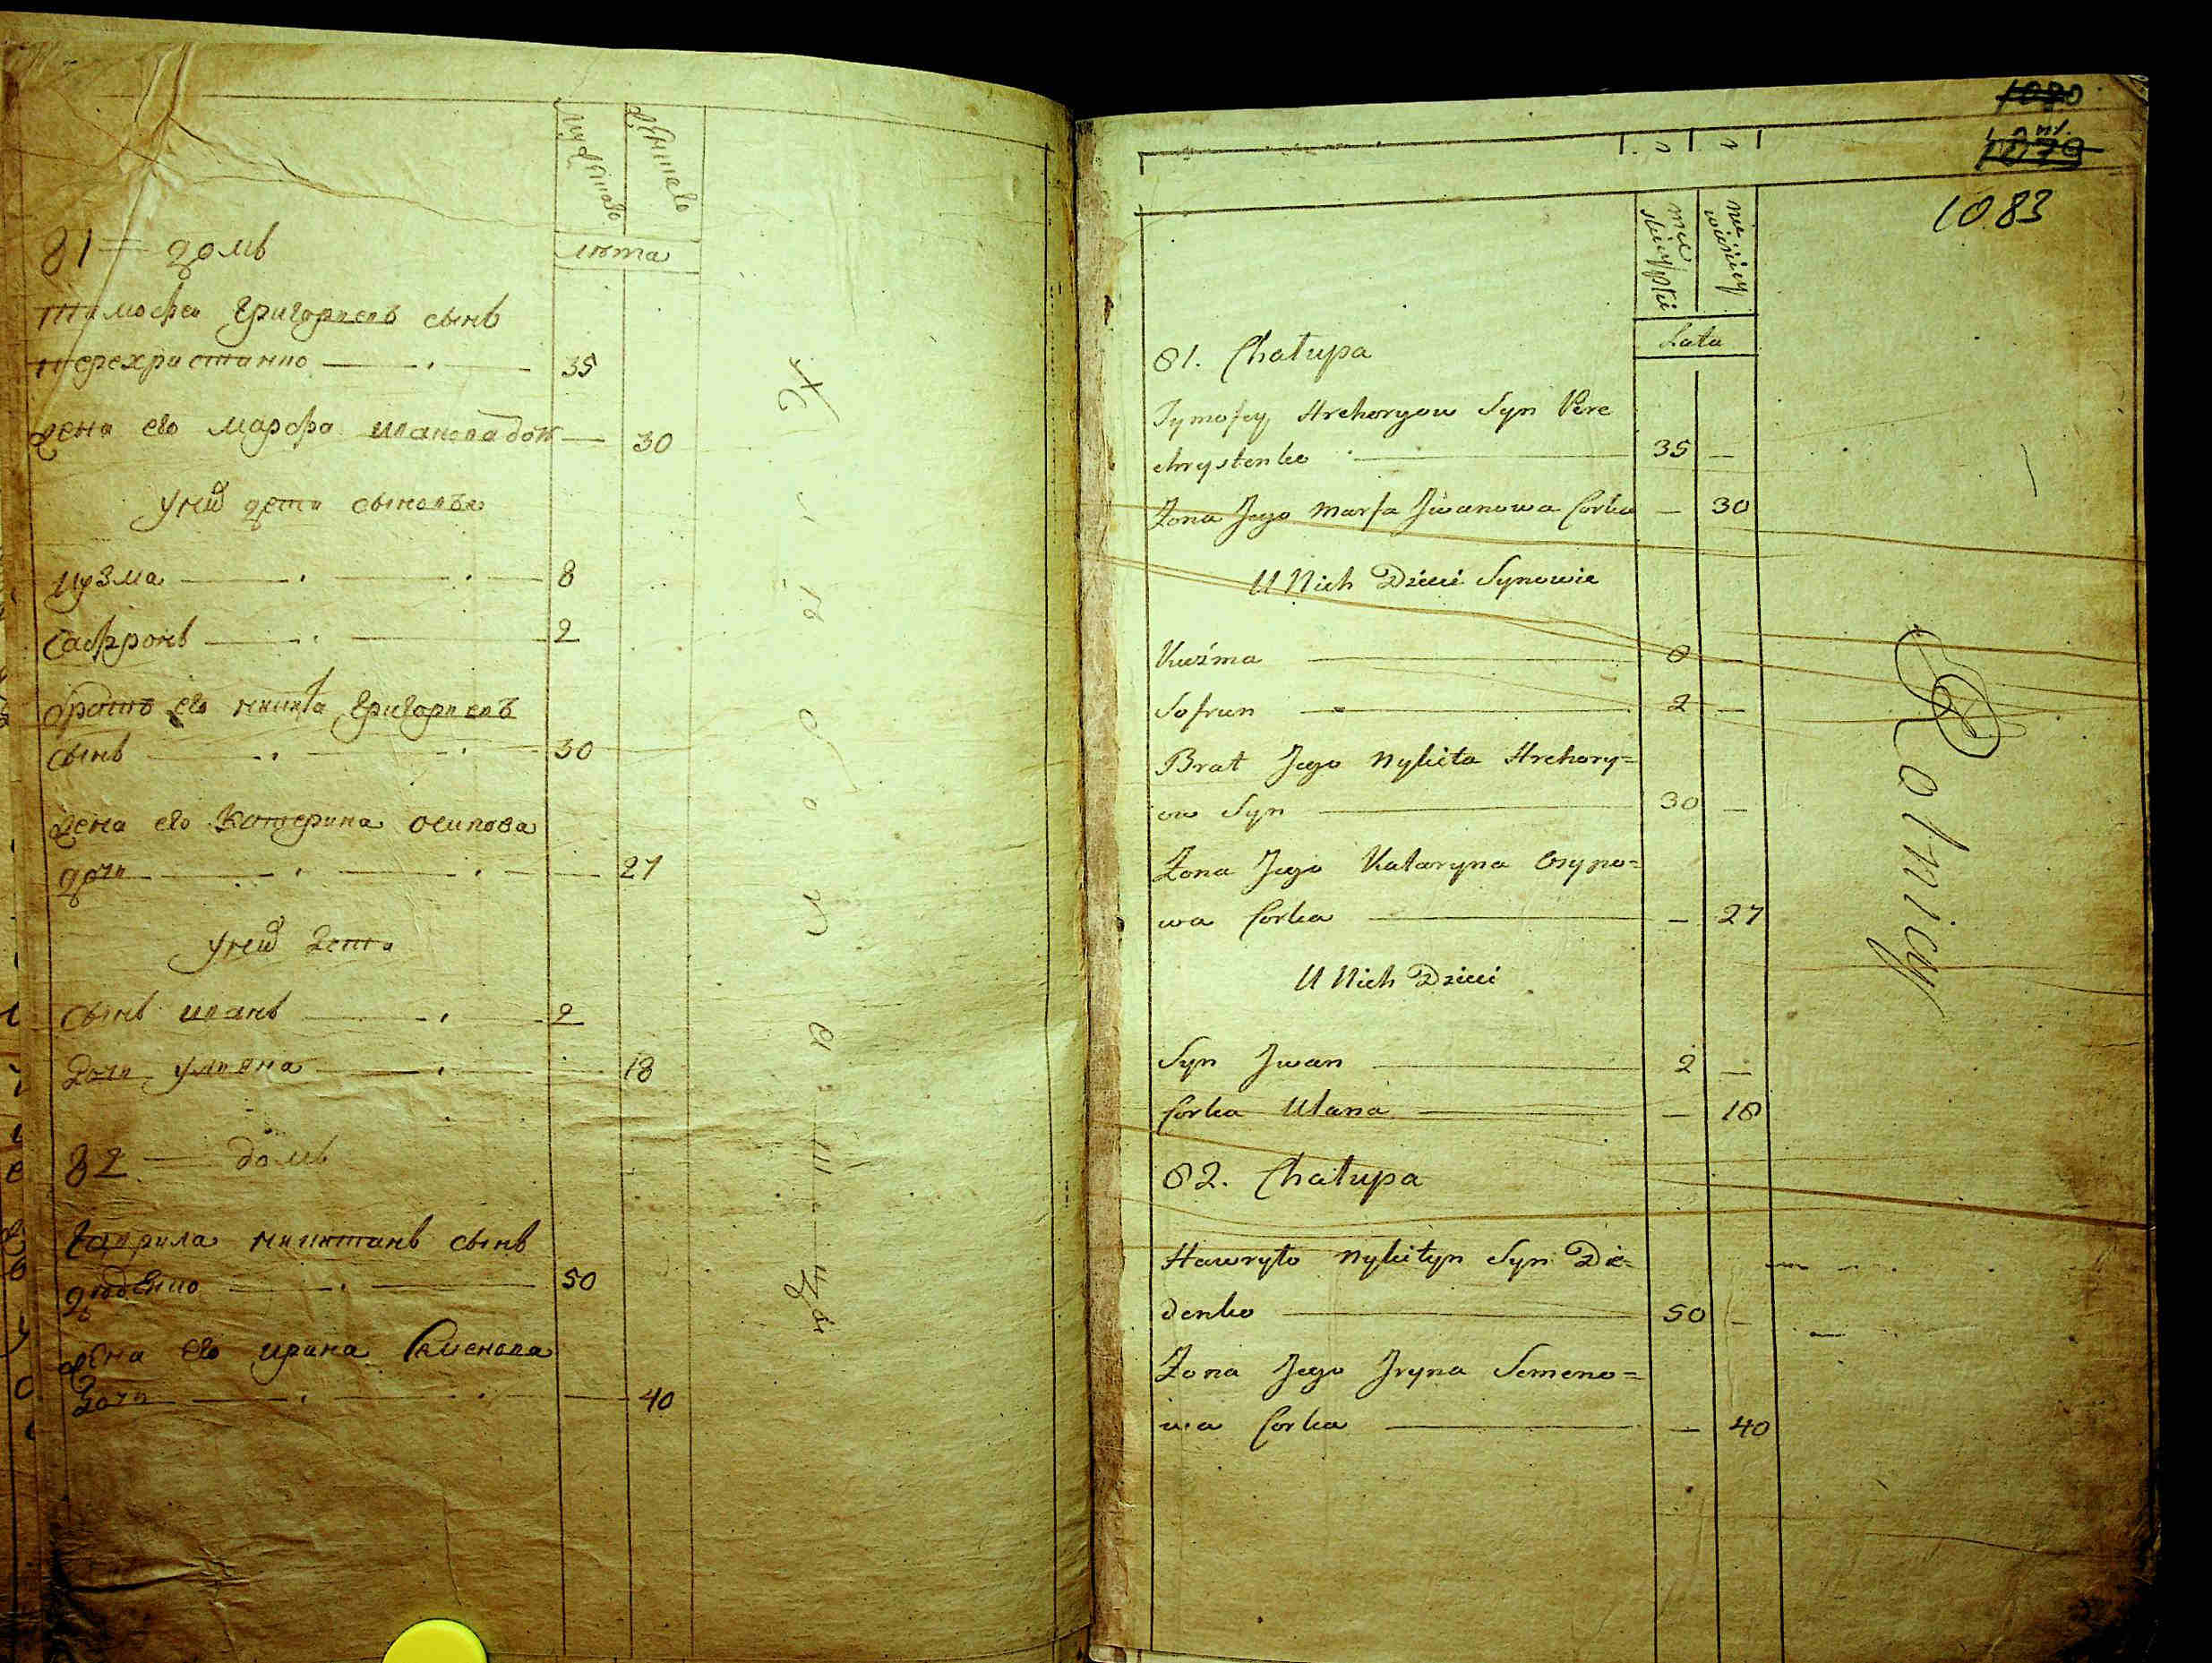 мужеска
женска
лѣта
81 = домъ
Тимофеи Григориевъ сынъ
Перехристенко 35
жена его Марфа Иванова доч 30
У них дети сыновья
Кузма 8
Сафронъ 2
братъ его Никита Григориевъ
сынъ 30
жена его Катерина Осипова
дочь 27
У них дети
Сынъ Иванъ 2
Дочь Улияна 18
82 = домъ
Гаврила Никитинъ сынъ
Деденко 50
жена его Ирина Семенова
дочь 40
1080
1079
1083
Lata
81. Chałupa
Tymofey Hrehoryow Syn Pere
chrystenko 35 —
Żona Jego Marfa Jwanowa Corka — 30
U Nich Dzieci Synowie
Kuźma 8 —
Sofron 2 —
Brat Jego Nykita Hrehory=
ow Syn 30 —
Żona Jego Kataryna Osypo=
wa Corka — 27
U Nich Dzieci
Syn Jwan 2 —
Corka Ulana — 18
82. Chałupa
Hawryło Nykityn Syn Die=
denko 50 —
Żona Jego Jryna Semeno=
wa Corka — 40
Rolnicy